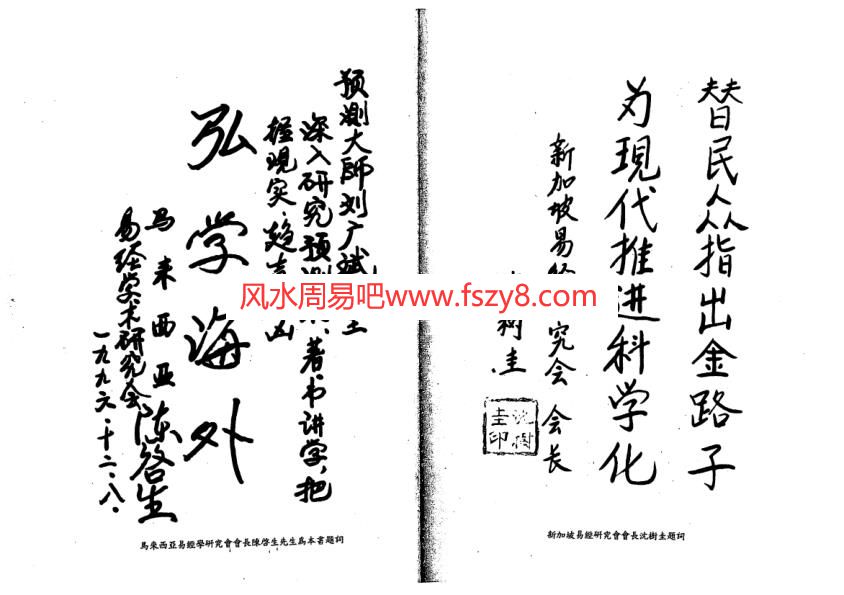 替民众指出金路子
为現代推进科学化
新加坡易经究会 会长
樹圭
沈樹圭印
新加坡易經研究會會長沈樹圭題詞
预测大師刘广斌
深入研究预测、著书讲学,把
握现实、趋吉凶
弘学海外
马来西亚
易经学术研究会 陈啓生
一九九六.十二.八.
馬來西亞易經學研究會會長陳啓生先生爲本書題詞
风水周易吧www.fszy8.com